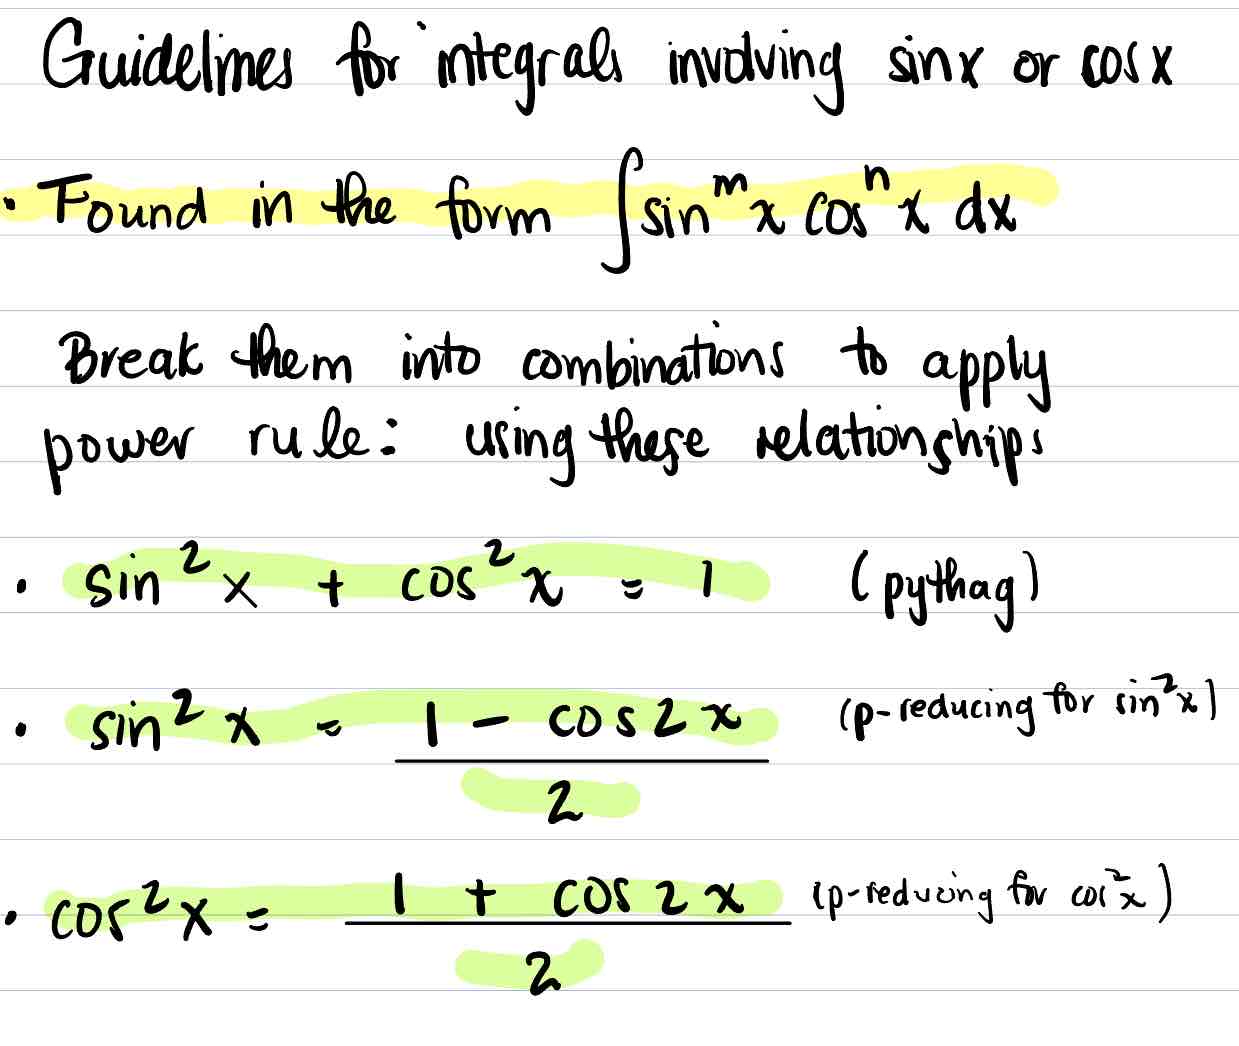 Guidelines for integrals involving sin x or cos x
• Found in the form ∫ sin^m x cos^n x dx
Break them into combinations to apply
power rule: using these relationships
• sin² x + cos² x = 1 (pythag)
• sin² x = (1 - cos 2x)/2 (p-reducing for sin² x)
• cos² x = (1 + cos 2x)/2 (p-reducing for cos² x)